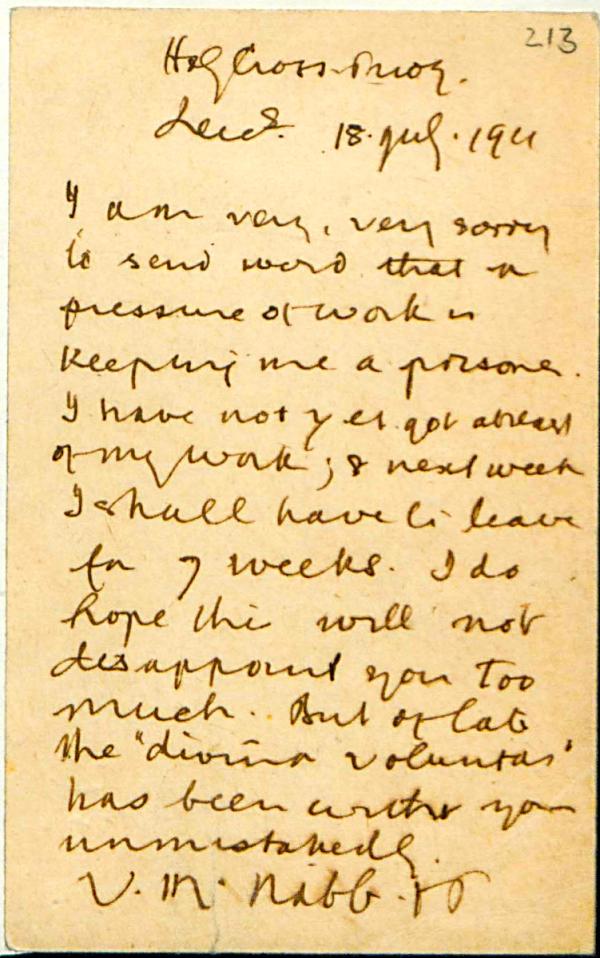 213
Holy Cross Priory.
Leic. 18. July. 1911
I am very, very sorry
to send word that a
pressure of work is
keeping me a prisoner.
I have not yet got abreast
of my work; & next week
I shall have to leave
for 7 weeks. I do
hope this will not
disappoint you too
much. But of late
the "divina voluntas"
has been with you
unmistakedly.
V. M. Nabb. O